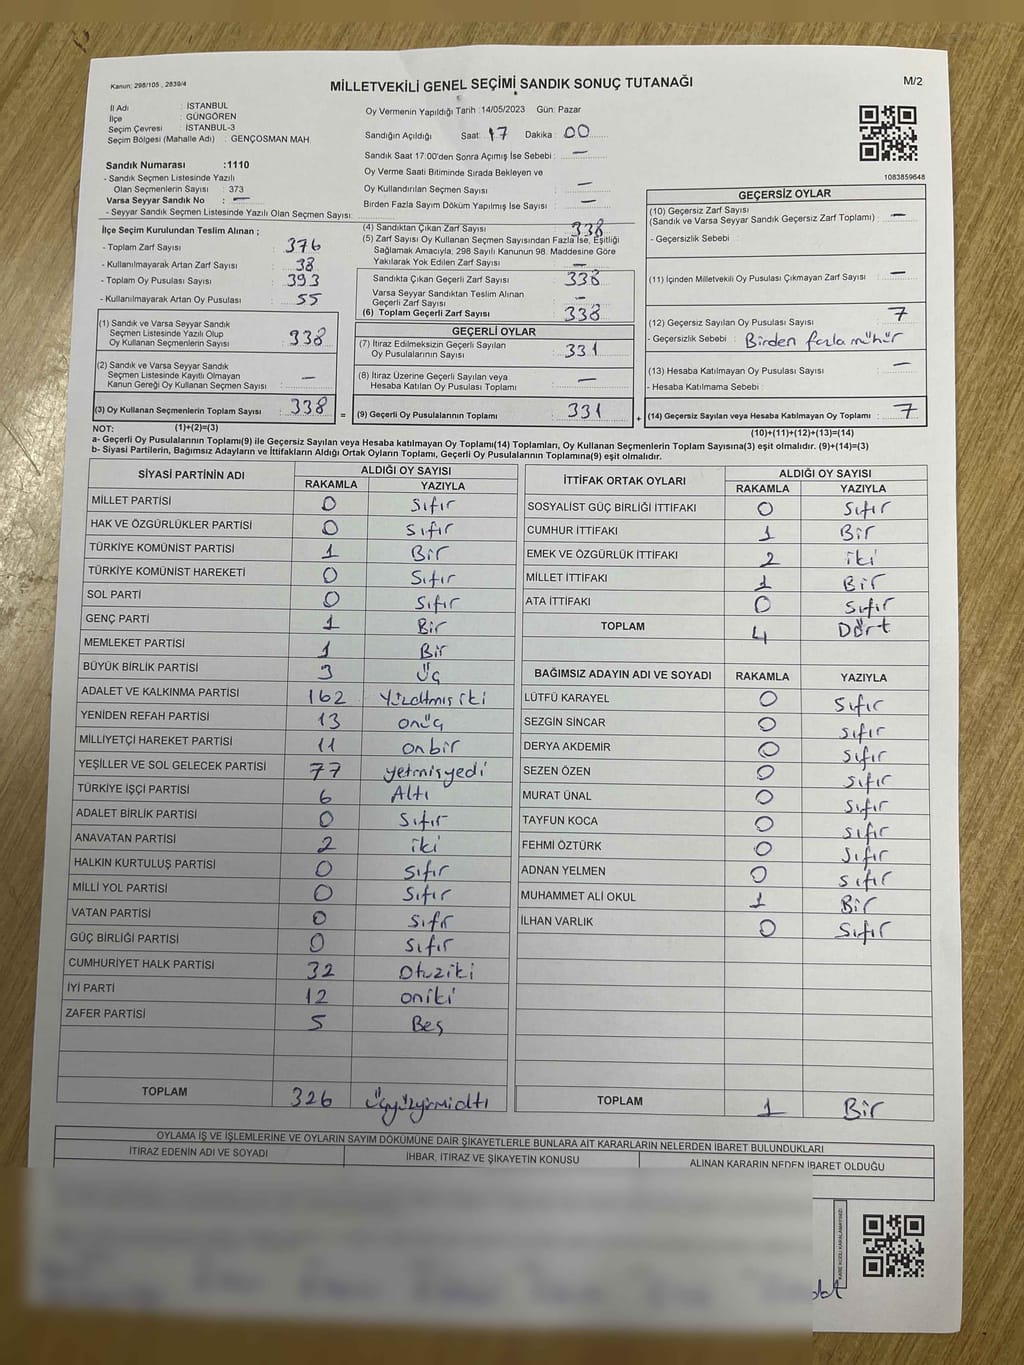 Kanun: 298/105 , 2839/4
MİLLETVEKİLİ GENEL SEÇİMİ SANDIK SONUÇ TUTANAĞI
M/2
İl Adı : İSTANBUL
İlçe : GÜNGÖREN
Seçim Çevresi : İSTANBUL-3
Seçim Bölgesi (Mahalle Adı) : GENÇOSMAN MAH
Sandık Numarası :1110
- Sandık Seçmen Listesinde Yazılı
Olan Seçmenlerin Sayısı : 373
Varsa Seyyar Sandık No : —
- Seyyar Sandık Seçmen Listesinde Yazılı Olan Seçmen Sayısı:
İlçe Seçim Kurulundan Teslim Alınan ;
- Toplam Zarf Sayısı : 376
- Kullanılmayarak Artan Zarf Sayısı : 38
- Toplam Oy Pusulası Sayısı : 393
- Kullanılmayarak Artan Oy Pusulası : 55
(1) Sandık ve Varsa Seyyar Sandık
Seçmen Listesinde Yazılı Olup
Oy Kullanan Seçmenlerin Sayısı : 338
(2) Sandık ve Varsa Seyyar Sandık
Seçmen Listesinde Kayıtlı Olmayan
Kanun Gereği Oy Kullanan Seçmen Sayısı : —
(3) Oy Kullanan Seçmenlerin Toplam Sayısı : 338
(1)+(2)=(3)
Oy Vermenin Yapıldığı Tarih :14/05/2023 Gün: Pazar
Sandığın Açıldığı Saat: 17 Dakika : 00
Sandık Saat 17:00'den Sonra Açımış İse Sebebi : —
Oy Verme Saati Bitiminde Sırada Bekleyen ve
Oy Kullandırılan Seçmen Sayısı : —
Birden Fazla Sayım Döküm Yapılmış İse Sayısı : —
(4) Sandıktan Çıkan Zarf Sayısı : 338
(5) Zarf Sayısı Oy Kullanan Seçmen Sayısından Fazla İse, Eşitliği
Sağlamak Amacıyla, 298 Sayılı Kanunun 98. Maddesine Göre
Yakılarak Yok Edilen Zarf Sayısı : —
Sandıkta Çıkan Geçerli Zarf Sayısı : 338
Varsa Seyyar Sandıktan Teslim Alınan
Geçerli Zarf Sayısı : —
(6) Toplam Geçerli Zarf Sayısı : 338
GEÇERLİ OYLAR
(7) İtiraz Edilmeksizin Geçerli Sayılan
Oy Pusulalarının Sayısı : 331
(8) İtiraz Üzerine Geçerli Sayılan veya
Hesaba Katılan Oy Pusulası Toplamı : —
= (9) Geçerli Oy Pusulalarının Toplamı : 331
1083859648
GEÇERSİZ OYLAR
(10) Geçersiz Zarf Sayısı
(Sandık ve Varsa Seyyar Sandık Geçersiz Zarf Toplamı) : —
- Geçersizlik Sebebi :
(11) İçinden Milletvekili Oy Pusulası Çıkmayan Zarf Sayısı : —
(12) Geçersiz Sayılan Oy Pusulası Sayısı : 7
- Geçersizlik Sebebi : Birden fazla mühür
(13) Hesaba Katılmayan Oy Pusulası Sayısı : —
- Hesaba Katılmama Sebebi :
+ (14) Geçersiz Sayılan veya Hesaba Katılmayan Oy Toplamı : 7
(10)+(11)+(12)+(13)=(14)
NOT:
a- Geçerli Oy Pusulalarının Toplamı(9) ile Geçersiz Sayılan veya Hesaba katılmayan Oy Toplamı(14) Toplamları, Oy Kullanan Seçmenlerin Toplam Sayısına(3) eşit olmalıdır. (9)+(14)=(3)
b- Siyasi Partilerin, Bağımsız Adayların ve İttifakların Aldığı Ortak Oyların Toplamı, Geçerli Oy Pusulalarının Toplamına(9) eşit olmalıdır.
SİYASİ PARTİNİN ADI ALDIĞI OY SAYISI
RAKAMLA YAZIYLA
MİLLET PARTİSİ 0 Sıfır
HAK VE ÖZGÜRLÜKLER PARTİSİ 0 Sıfır
TÜRKİYE KOMÜNİST PARTİSİ 1 Bir
TÜRKİYE KOMÜNİST HAREKETİ 0 Sıfır
SOL PARTİ 0 Sıfır
GENÇ PARTİ 1 Bir
MEMLEKET PARTİSİ 1 Bir
BÜYÜK BİRLİK PARTİSİ 3 üç
ADALET VE KALKINMA PARTİSİ 162 Yüzaltmış iki
YENİDEN REFAH PARTİSİ 13 onüç
MİLLİYETÇİ HAREKET PARTİSİ 11 onbir
YEŞİLLER VE SOL GELECEK PARTİSİ 77 yetmişyedi
TÜRKİYE İŞÇİ PARTİSİ 6 Altı
ADALET BİRLİK PARTİSİ 0 Sıfır
ANAVATAN PARTİSİ 2 iki
HALKIN KURTULUŞ PARTİSİ 0 Sıfır
MİLLİ YOL PARTİSİ 0 Sıfır
VATAN PARTİSİ 0 Sıfır
GÜÇ BİRLİĞİ PARTİSİ 0 Sıfır
CUMHURİYET HALK PARTİSİ 32 Otuziki
İYİ PARTİ 12 oniki
ZAFER PARTİSİ 5 Beş
TOPLAM 326 üçyüzyirmialtı
İTTİFAK ORTAK OYLARI ALDIĞI OY SAYISI
RAKAMLA YAZIYLA
SOSYALİST GÜÇ BİRLİĞİ İTTİFAKI 0 Sıfır
CUMHUR İTTİFAKI 1 Bir
EMEK VE ÖZGÜRLÜK İTTİFAKI 2 iki
MİLLET İTTİFAKI 1 Bir
ATA İTTİFAKI 0 Sıfır
TOPLAM 4 Dört
BAĞIMSIZ ADAYIN ADI VE SOYADI RAKAMLA YAZIYLA
LÜTFÜ KARAYEL 0 Sıfır
SEZGİN SİNCAR 0 Sıfır
DERYA AKDEMİR 0 Sıfır
SEZEN ÖZEN 0 Sıfır
MURAT ÜNAL 0 Sıfır
TAYFUN KOCA 0 Sıfır
FEHMİ ÖZTÜRK 0 Sıfır
ADNAN YELMEN 0 Sıfır
MUHAMMET ALİ OKUL 1 Bir
İLHAN VARLIK 0 Sıfır
TOPLAM 1 Bir
OYLAMA İŞ VE İŞLEMLERİNE VE OYLARIN SAYIM DÖKÜMÜNE DAİR ŞİKAYETLERLE BUNLARA AİT KARARLARIN NELERDEN İBARET BULUNDUKLARI
İTİRAZ EDENİN ADI VE SOYADI İHBAR, İTİRAZ VE ŞİKAYETİN KONUSU ALINAN KARARIN NEDEN İBARET OLDUĞU